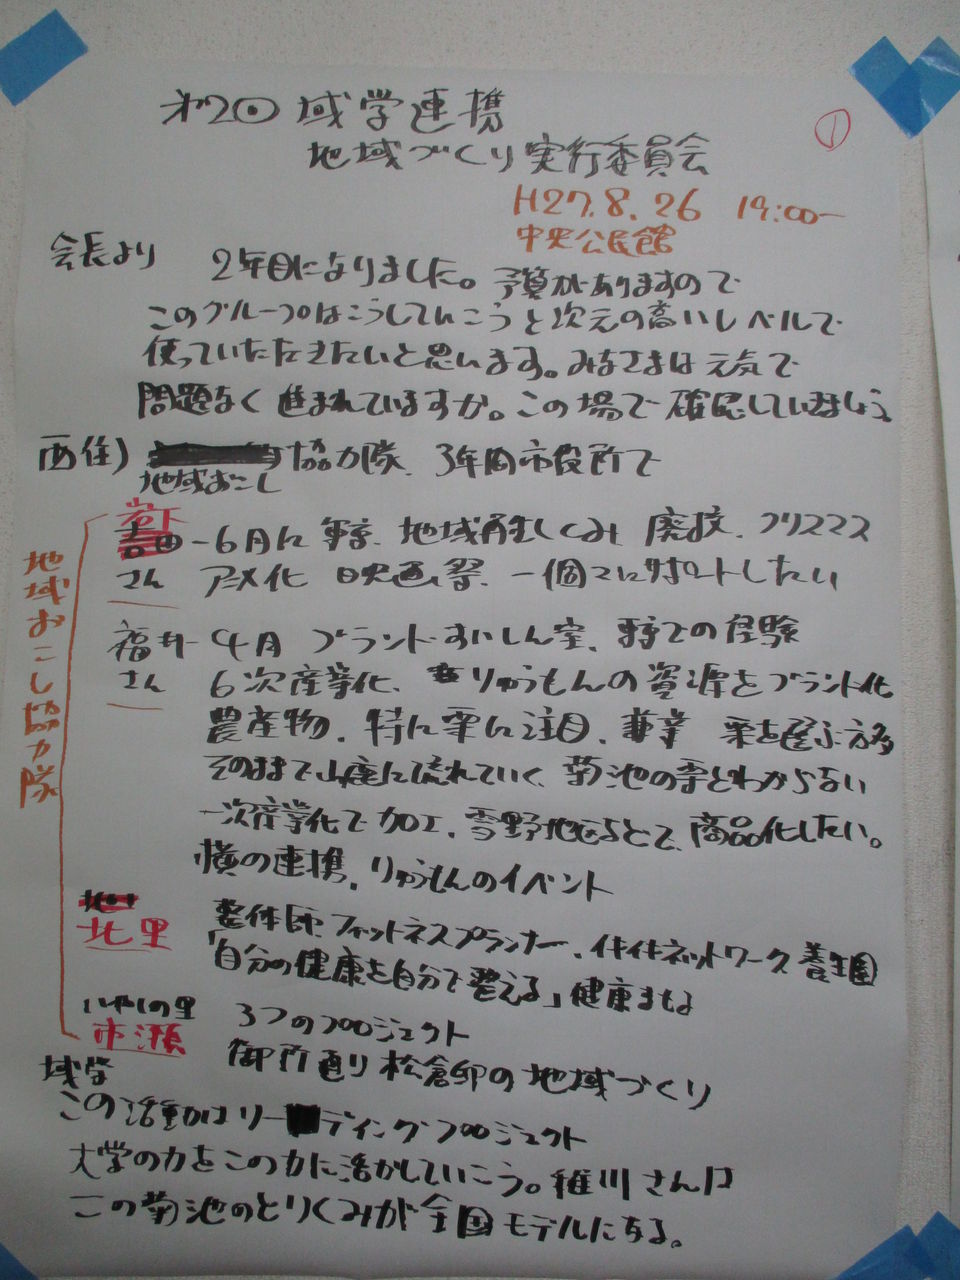 第2回 域学連携
①
地域づくり実行委員会
H27.8.26 19:00〜
中央公民館
会長より 2年目になりました。予算がありますので
このグループはこうしていこうと次元の高いレベルで
使っていただきたいと思います。みなさまは元気で
問題なく進まれていますか。この場で確認していきましょう。
西住) 協力隊. 3年間市役所で
地域おこし
岩下
吉田 - 6月に 東京. 地域再生しくみ 廃校. クリスマス
さん アニメ化 映画祭. 一個でにサポートしたい
地域おこし協力隊
福井 4月 ブランドすいしん室. 東京での経験
さん 6次産業化. りゅうもんの資源をブランド化
農産物. 特に栗に注目. 兼業 栗を選ぶ方多
そのままで山鹿に流れていく. 菊池の栗とわからない
一次産業化で加工. 雪野地区などで. 商品化したい。
横の連携. りゅうもんのイベント
北里 整体師 フィットネスプランナー. イキイキネットワーク 養生園
「自分の健康を自分で整える」健康まもる
いやしの里 3つのプロジェクト
市瀬 御所通り 松倉邸の地域づくり
域学
この活動はリーディングプロジェクト
大学の力をこの力に活かしていこう。椎川さんは
この菊池のとりくみが全国モデルになる。